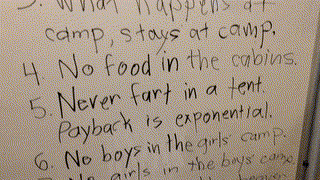 3. What happens at
camp, stays at camp.
4. No food in the cabins.
5. Never fart in a tent.
Payback is exponential.
6. No boys in the girls' camp.
7. No girls in the boys' camp